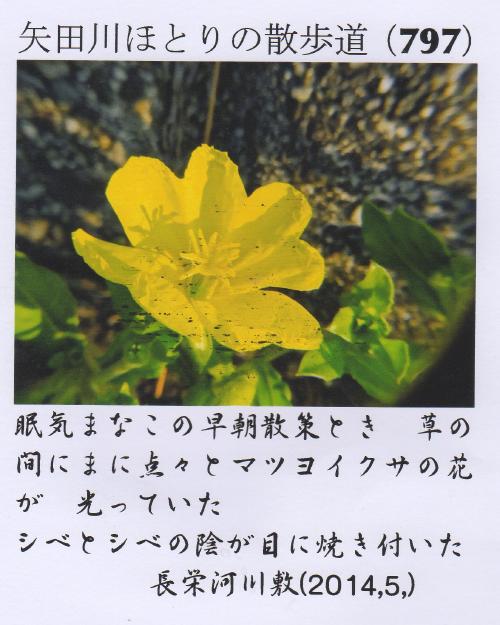 矢田川ほとりの散歩道（797）
眠気まなこの早朝散策とき　草の
間にまに点々とマツヨイクサの花
が　光っていた
シベとシベの陰が目に焼き付いた
長栄河川敷(2014,5,)